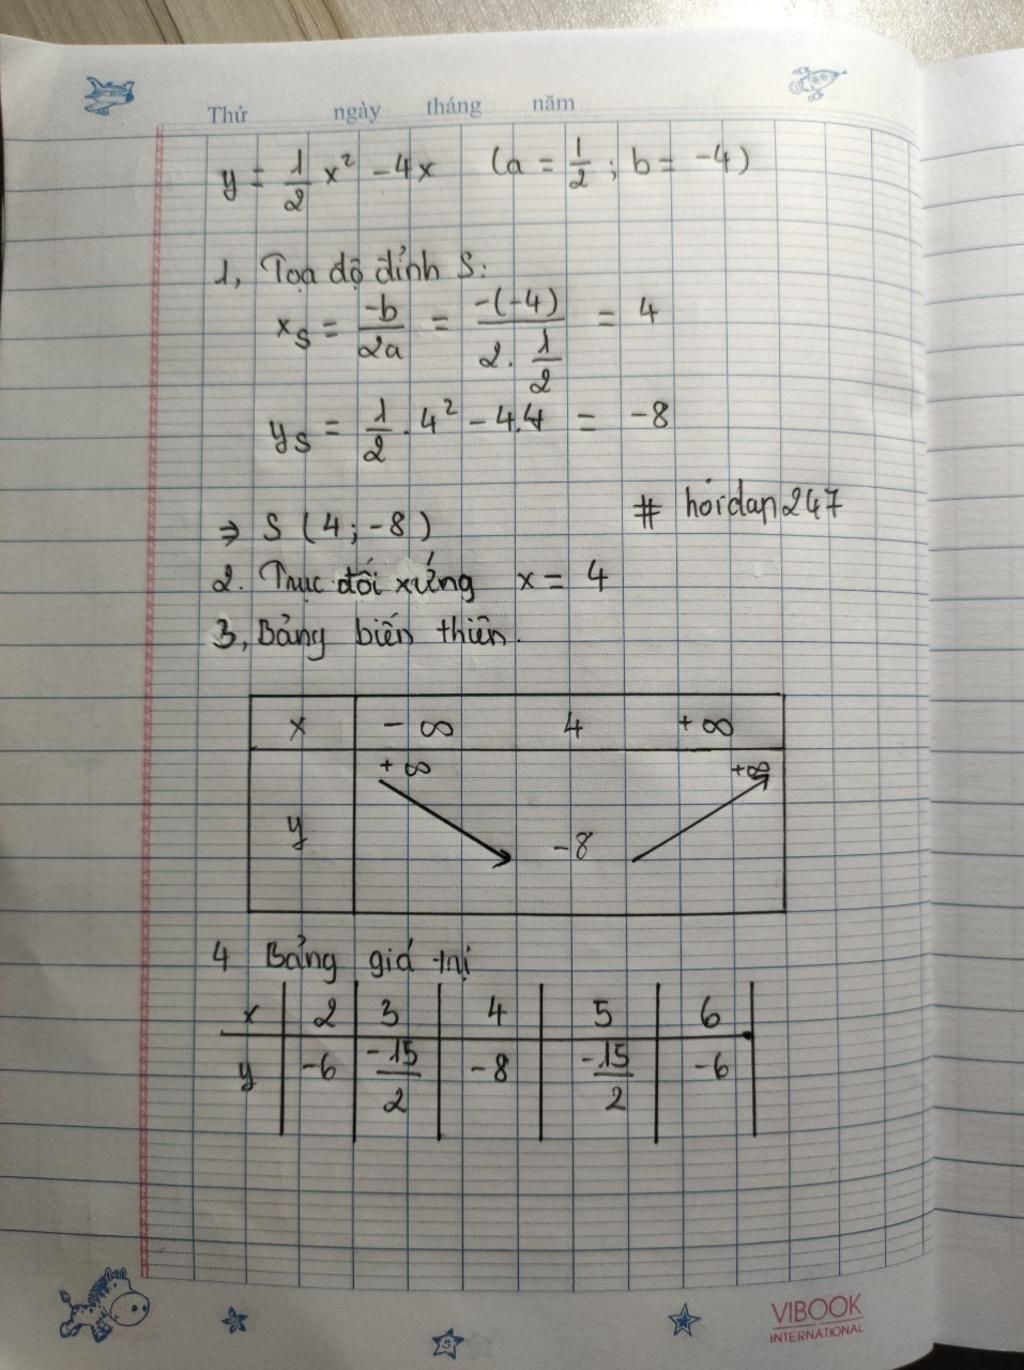 Thứ ngày tháng năm
y = 1/2 x² - 4x (a = 1/2 ; b = -4)
1, Tọa độ đỉnh S:
x_S = -b/2a = -(-4)/(2 . 1/2) = 4
y_S = 1/2 . 4² - 4.4 = -8
# hoidap247
⇒ S (4 ; -8)
2. Trục đối xứng x = 4
3, Bảng biến thiên.
x -∞ 4 +∞
+∞ +∞
y -8
4 Bảng giá trị
x 2 3 4 5 6
y -6 -15/2 -8 -15/2 -6
VIBOOK
INTERNATIONAL